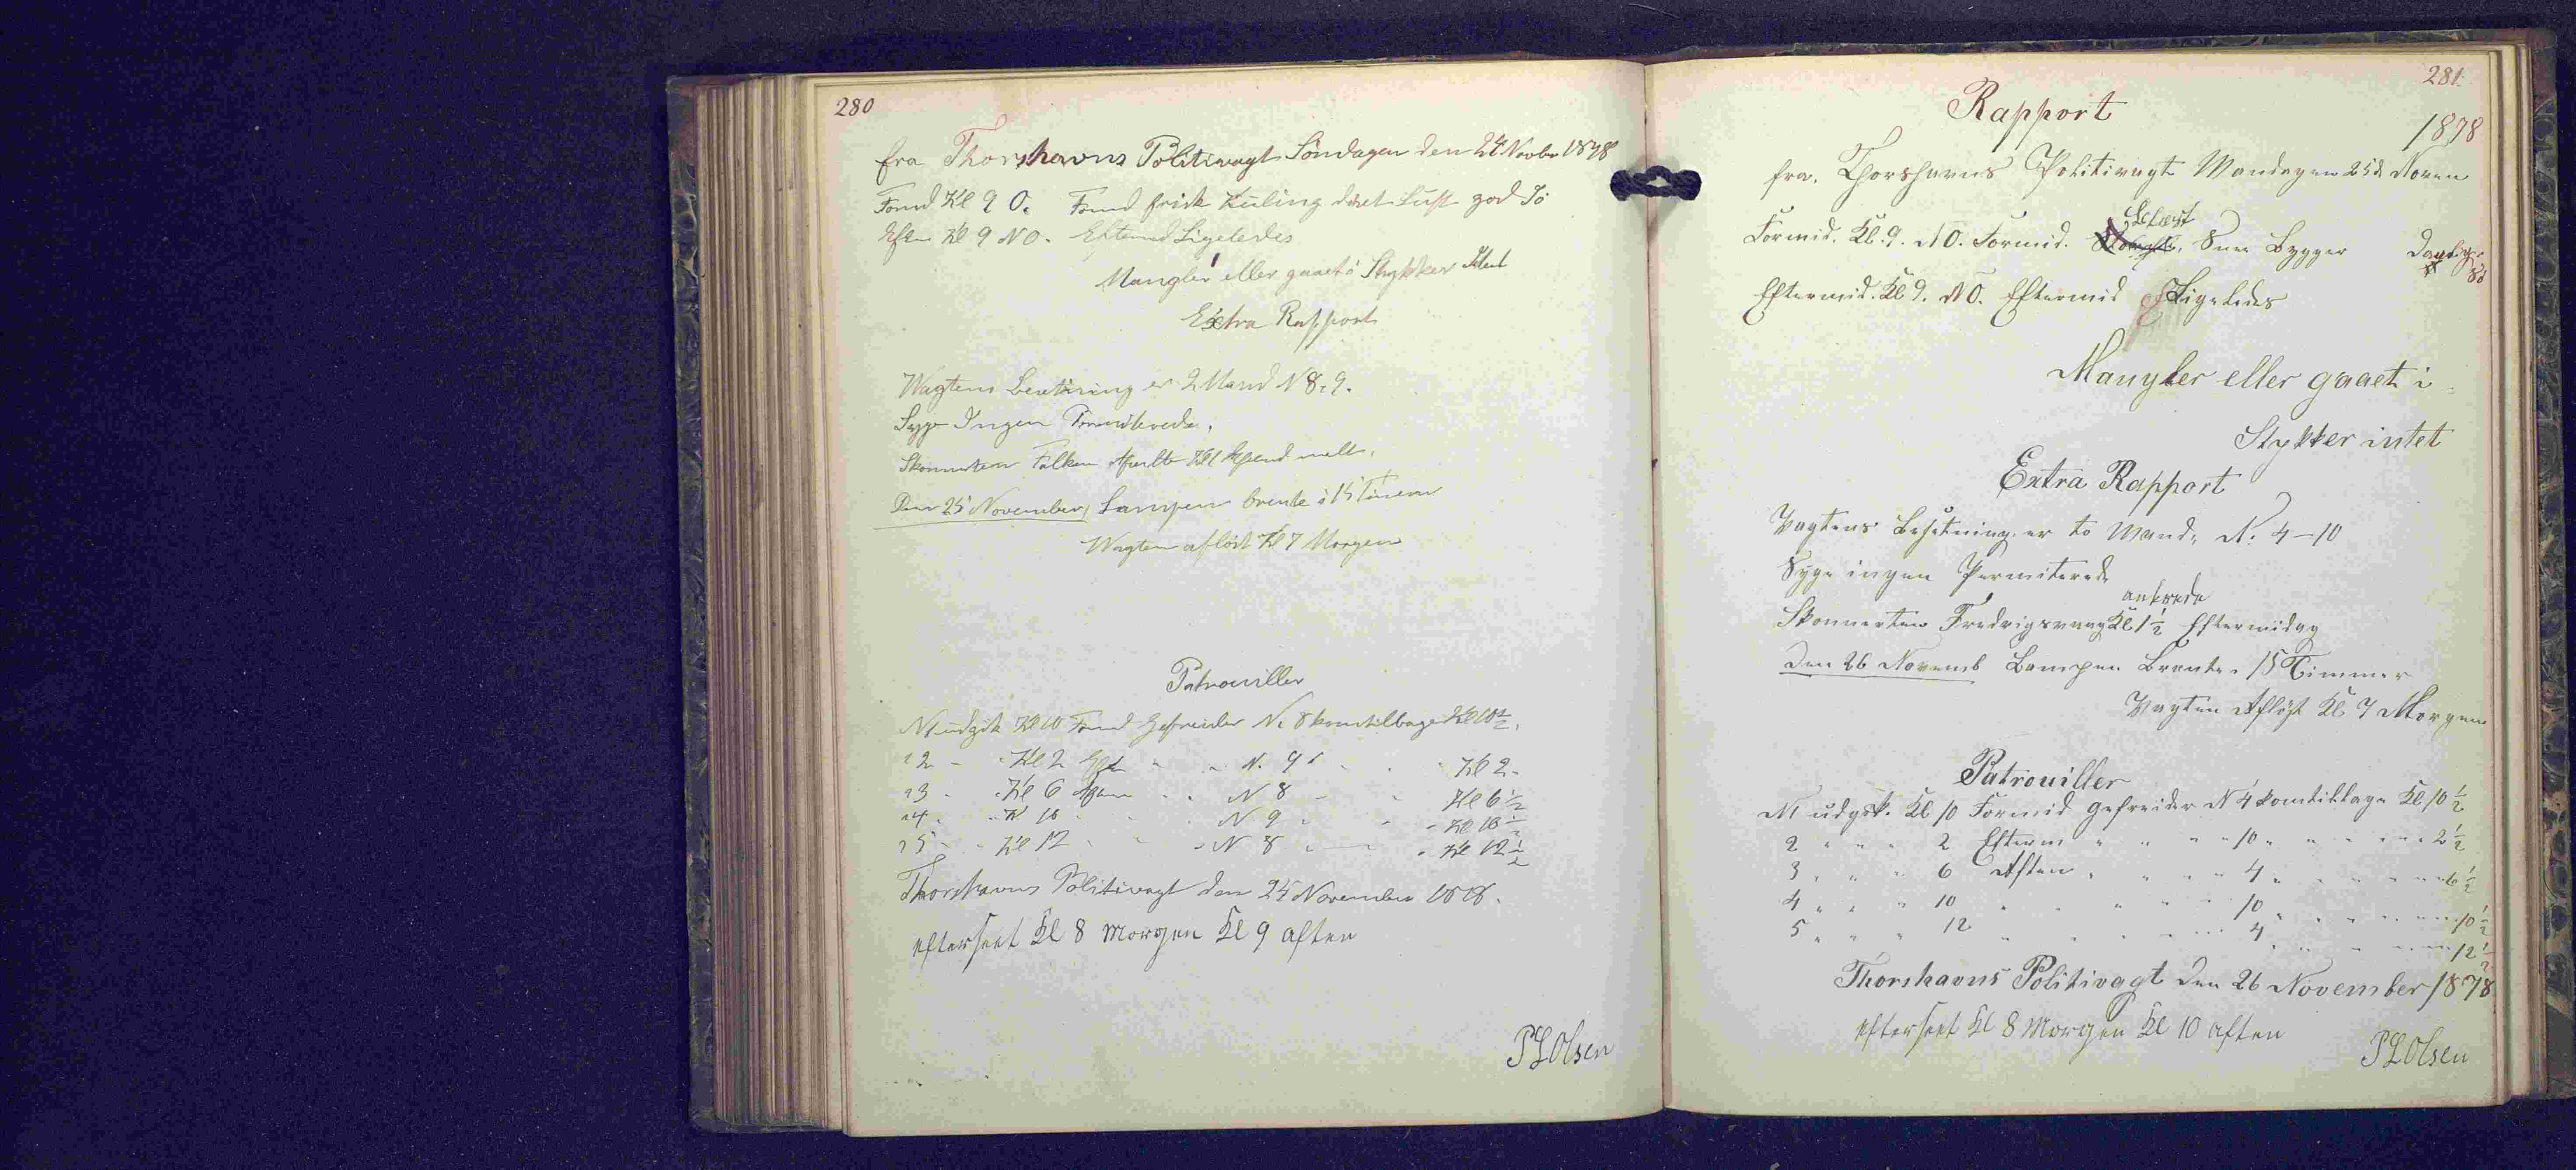 280
fra Thorshavns Politivagt Söndagen den 24 Novbr 1878
Formd Kl 9 O. Formd frisk Kuling dket Luft god Sö
Eftm Kl 9 NO. Eftermd Ligeledes
Mangler eller gaaet i Stykker Intet
Extra Rapport
Wagtens Besætning er 2 Mand N 8. 9.
Syge Ingen Permiterede.
Skonnerten Falken
Den 25 November, Lampen brente i 15 Timer
Wagten aflöst Kl 7 Morgen
Patrouiller
N 1 udgik Kl 10 Formd Gefreider N. 8 kom tilbage Kl 10 1/2.
" 2 - - Kl 2 Eft - - N. 9 " - - Kl 2 -
" 3 - - Kl 6 Aften - - N 8 - - Kl 6 1/2
" 4 - - Kl 10 - - N 9 - - Kl 10 1/2
" 5 - - Kl 12 - - N 8 - - Kl 12 1/2
Thorshavns Politivagt den 25 November 1878.
efterseet Kl 8 Morgen Kl 9 aften
P L Olsen
281.
Rapport
1878
fra. Thorshavns Politivagt Mandagen 25d Noven
Formid. Kl. 9. NO. Formid. Snee Bygger
Eftermid. Kl 9. NO. Eftermid Ligeledes
Mangler eller gaaet i
Stykker intet
Extra Rapport
Vagtens Besetning er to Mand, N. 4 - 10
Syge ingen Permiterede
ankrede
Skonnerten Fredrigsvaag Kl 1 1/2 Eftermidag
Den 26 Novemb Lampen Brente. 15 Timmer
Vagten Aflöst Kl 7 Morgen
Patrouiller
N 1 udgik. Kl 10 Formid Gefreider N 4 kom tilbage Kl 10 1/2
2 " " " 2 Efterm " " " " 10 " " " " " 2 1/2
3 " " " 6 Aften " " " " 4 " " " " " 6 1/2
4 " " " 10 " " " " " 10 " " " " " 10 1/2
5 " " " 12 " " " " " 4 " " " " " 12 1/2
Thorshavns Politivagt den 26 November 1878
efterseet Kl 8 Morgen Kl 10 aften
P L Olsen